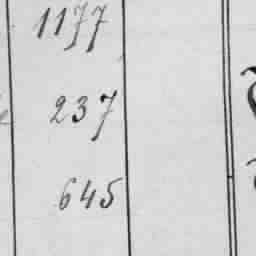 1177
237
645